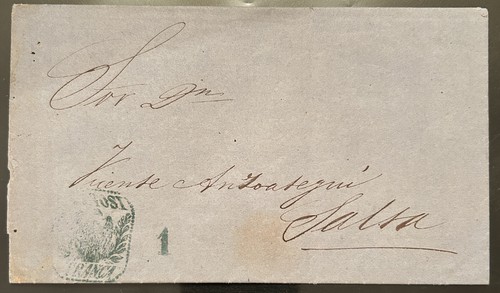 Sor Dn
Vicente Anzoategui
Salta
FRANCA
1